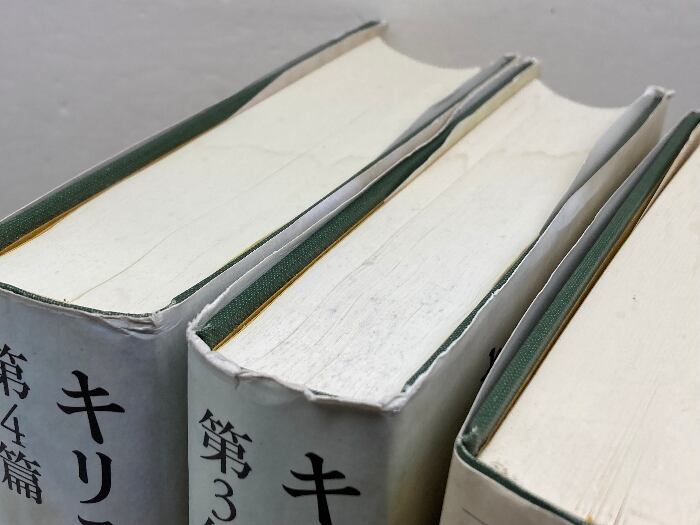 第4篇
キリ
第3
キ